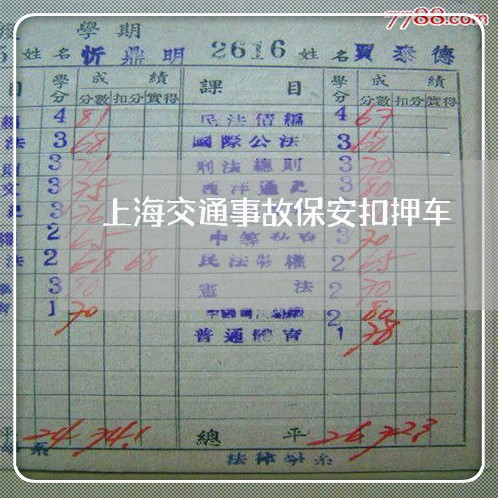 7788.com
學期
姓名 忻鼎明 2616 姓名 賈泰德
目 學分 成績 課目 學分 成績
分數 扣分 實得 分數 扣分 實得
4 81 民法債編 4 67
法 3 68 國際公法 3 60
3 刑法總則 3 70
3 75 西洋通史 3 80
上海交通事故保安扣押车
2 65 3 70
法 2 68 68 民法物權 2 65
3 80 憲法 2 70
1 70 2 80
普通體育 1 78
24 74.1 總平 26 72.3
系 法律學系